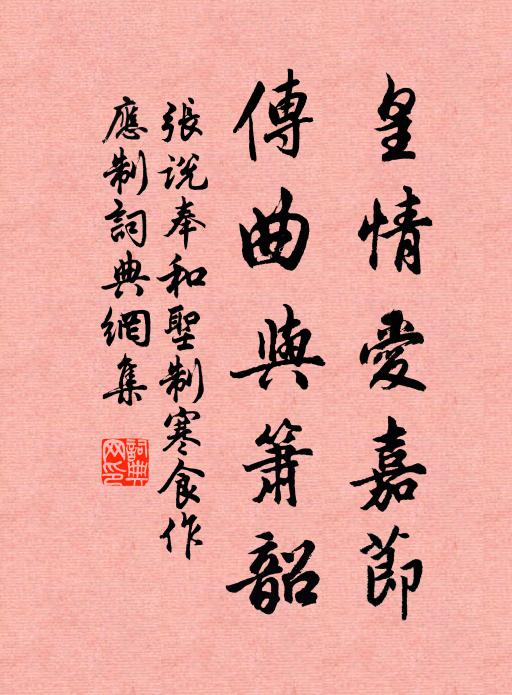 皇情愛嘉節
傳曲與簫韶
張說奉和聖制寒食作
應制詞典網集
詞典網印